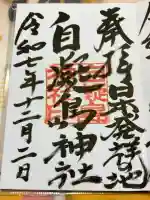 奉拝日本発祥地
自凝島神社
令和七年十二月二日